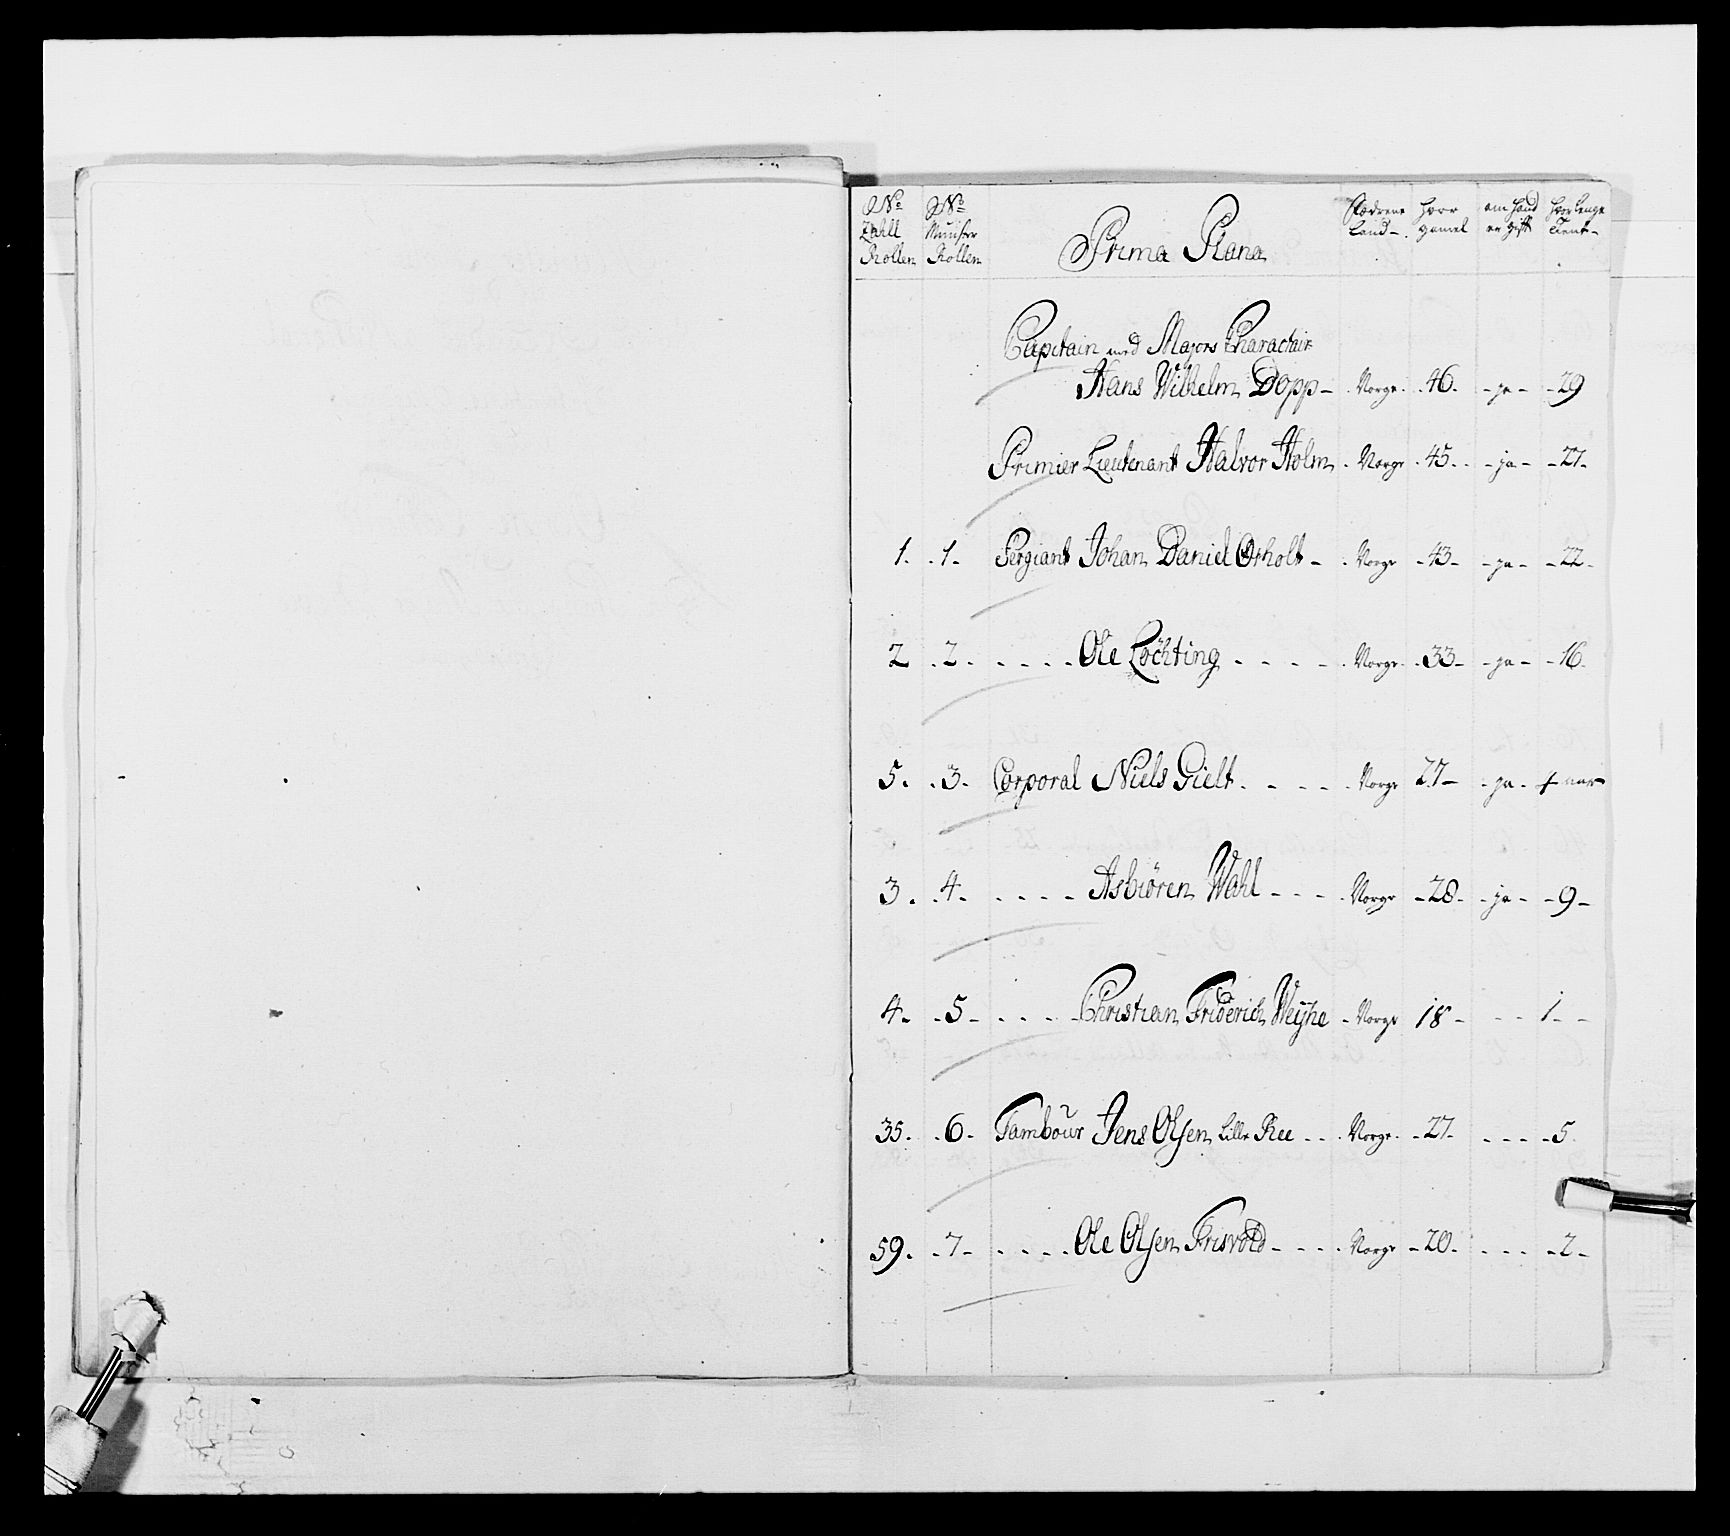 No Zahll Rollen No Munster Rollen Prima Plana Fædrene Land Hvor gamel om hand er gift hvor lenge tient
Capitain med Majors Charactair
Hans Wilhelm Dopp - Norge. 46. - ja - - 29
Primier Lieutenant Halvor Holm. Norge. 45. - ja - - 27.
1. 1. Sergiant Johan Daniel Orholt - Norge - 43 - - ja - - 22.
2 2. Ole Löchting Norge. 33 - - ja - - 16.
5. 3. Corporal Niels Gielt. Norge 27 - ja - aar
3. 4. Asbiören Wahl Norge - 28. - ja - - 9 -
4. 5 - Christian Friderich Weÿhe - Norge 18 - 1 -
35. 6. Tambour Jens Olsen Lille Ree Norge. - 27. 5.
59. 7 - Ole Olsen Frisvold Norge - 20. - 2 -